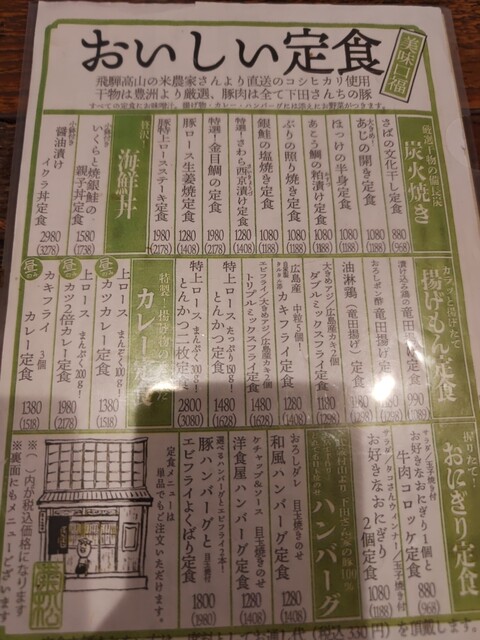 おいしい定食
美味口福
飛騨高山の米農家さんより直送のコシヒカリ使用
干物は豊洲より厳選、豚肉は全て下田さんちの豚
すべての定食にお味噌汁。揚げ物・カレー・ハンバーグには添えにお野菜がつきます。
炭火焼き
さばの文化干し定食 880 (968)
大きめ!
あじの開き定食 1080 (1188)
ほっけの半身定食 1080 (1188)
あこう鯛の粕漬け定食 1080 (1188)
ぶりの照り焼き定食 1080 (1188)
銀鮭の塩焼き定食 1080 (1188)
特選!さわら西京漬け定食 1280 (1408)
特選!金目鯛の定食 1980 (2178)
豚ロース生姜焼定食 1280 (1408)
豚特上ロースステーキ定食 1980 (2178)
贅沢!
海鮮丼
小鉢付き
いくらと焼銀鮭の
親子丼定食 1580 (1738)
小鉢付き
醤油漬け
イクラ丼定食 2980 (3278)
カラッと揚げたて
揚げもん定食
漬け込み鶏の竜田揚げ定食 990
おろしポン酢竜田揚げ定食
油淋鶏(竜田揚げ)定食
大きめアジ/広島産カキ2個
ダブルミックスフライ定食 1180
広島産 中粒5個!
自家製タルタル添
カキフライ定食 1280 (1408)
エビフライ/大きめアジ/広島産カキ2個
トリプルミックスフライ定食 1480 (1628)
上ロース たっぷり150g!
とんかつ定食 1480 (1628)
特上ロース まんぷく300g!
とんかつ二枚定食 2800 (3080)
特製!揚げ物の
カレー
上ロース まんぷく100g!
カツカレー定食 1380 (1518)
昼の
上ロース まんぷく200g!
カツ2倍カレー定食 1980 (2178)
昼の
カキフライ 3個
カレー定食 1380 (1518)
握りたて!
おにぎり定食
サラダ/玉子焼き付
お好きなおにぎり1個と
牛肉コロッケ定食 880 (968)
サラダ/タコさんウィンナー/玉子焼き付
お好きなおにぎり
2個定食 1080 (1188)
ハンバーグ
おろしダレ 目玉焼きのせ
和風ハンバーグ定食 1280 (1408)
ケチャップ&ソース 目玉焼きのせ
洋食屋ハンバーグ定食 1280 (1408)
選べるハンバーグとエビフライ2本!
豚ハンバーグと
エビフライよくばり定食 1800 (1980)
定食メニューは
単品でもご注文いただけます。
※( )内が税込価格になります
※裏面にもメニューございます